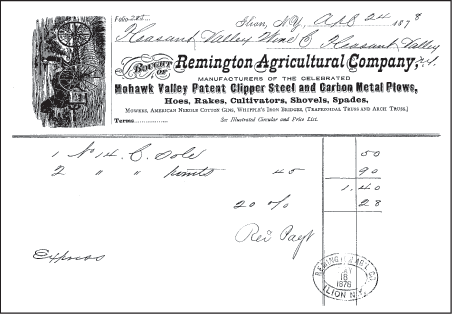 Folio 285 Ilion, N.Y., Apl 24 1878
Pleasant Valley Wine C Pleasant Valley
BOUGHT OF Remington Agricultural Company,
MANUFACTURERS OF THE CELEBRATED
Mohawk Valley Patent Clipper Steel and Carbon Metal Plows,
Hoes, Rakes, Cultivators, Shovels, Spades,
Mowers, American Needle Cotton Gins, Whipple's Iron Bridges, (Trapezoidal Truss and Arch Truss.)
Terms See Illustrated Circular and Price List.
1 No 14 C. Sole 50
2 " " points 45 90
1.40
20 % 28
Rec Payt
Express
REMINGTON AG'L CO
18
1878
ILION N.Y.